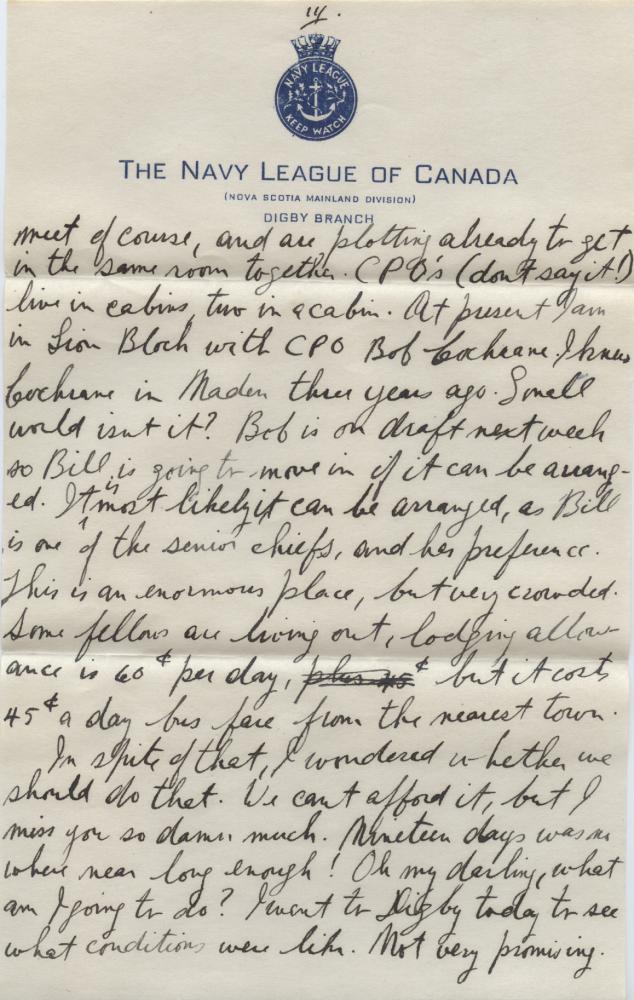 14.
NAVY LEAGUE
KEEP WATCH
THE NAVY LEAGUE OF CANADA
(NOVA SCOTIA MAINLAND DIVISION)
DIGBY BRANCH
meet of course, and are plotting already to get
in the same room together. CPO's (don't say it!)
live in cabins, two in a cabin. At present I am
in Lion Block with CPO Bob Cochrane. I knew
Cochrane in Maden three years ago. Small
world isnt it? Bob is on draft next week
so Bill is going to move in if it can be arrang-
ed. It is most likely it can be arranged, as Bill
is one of the senior chiefs, and has preference.
This is an enormous place, but very crowded.
Some fellows are living out, lodging allow-
ance is 60¢ per day, plus 45¢ but it costs
45¢ a day bus fare from the nearest town.
In spite of that, I wondered whether we
should do that. We cant afford it, but I
miss you so damn much. Nineteen days was no
where near long enough! Oh my darling, what
am I going to do? I went to Digby today to see
what conditions were like. Not very promising.